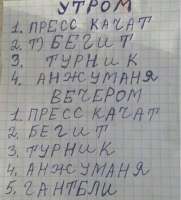 УТРОМ
1. ПРЕСС КАЧАТ
2. Т) БЕГИТ
3. ТУРНИК
4. АНЖУМАНЯ
ВЕЧЕРОМ
1. ПРЕСС КАЧАТ
2. БЕГИТ
3. ТУРНИК
4. АНЖУМАНЯ
5. ГАНТЕЛИ